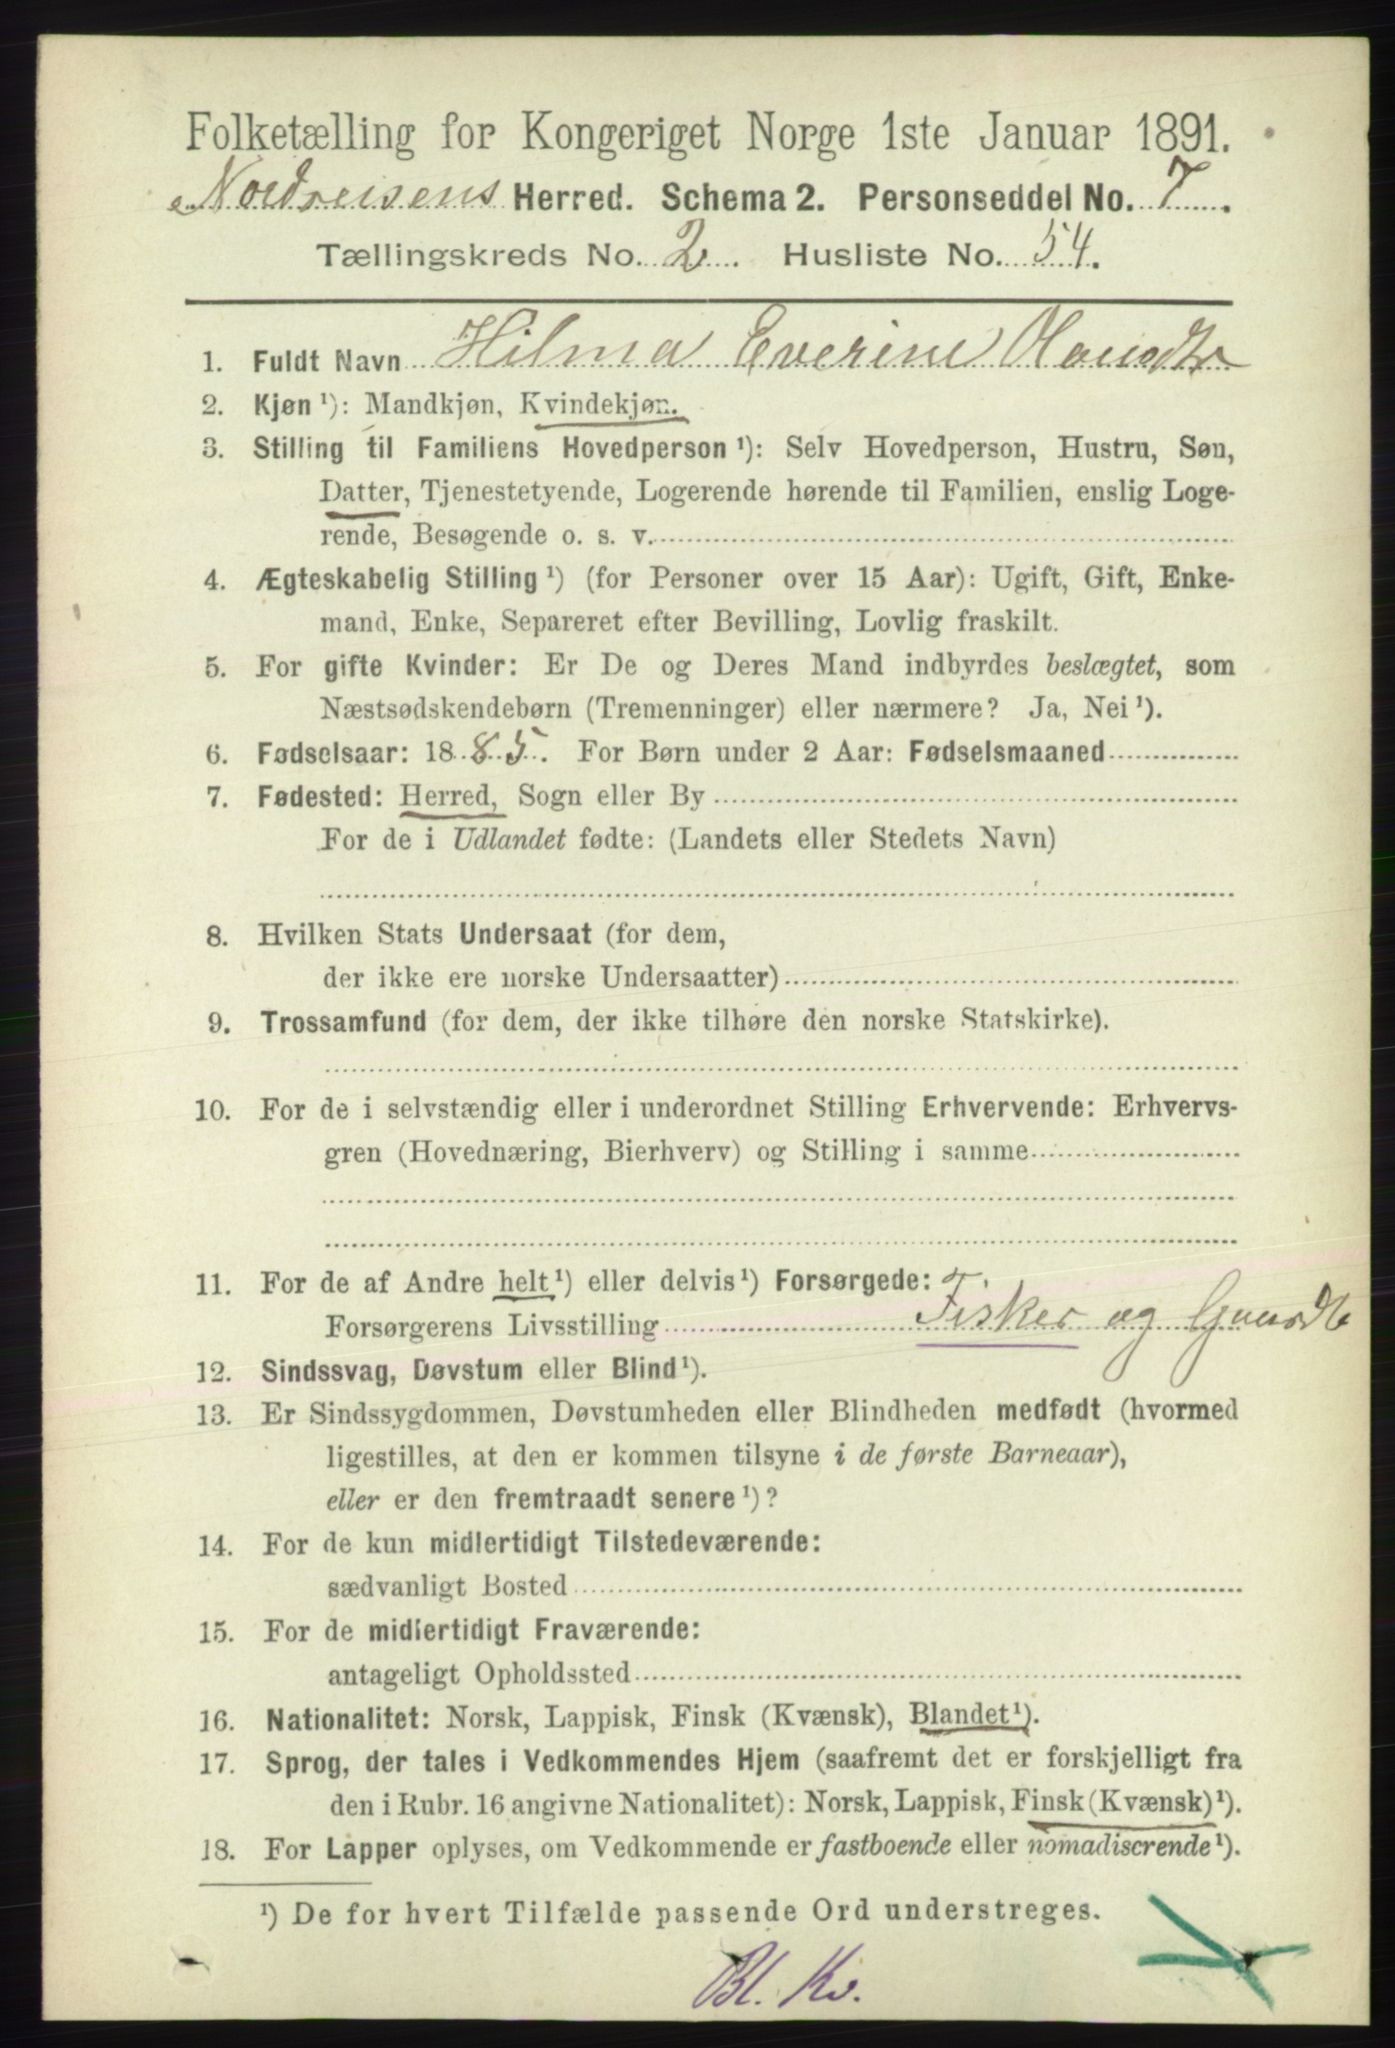 Folketælling for Kongeriget Norge 1ste Januar 1891.
Nordreisens Herred. Schema 2. Personseddel No. 7.
Tællingskreds No. 2. Husliste No. 54.
1. Fuldt Navn Hilma Everine
2. Kjøn¹): Mandkjøn, Kvindekjøn.
3. Stilling til Familiens Hovedperson¹): Selv Hovedperson, Hustru, Søn,
Datter, Tjenestetyende, Logerende hørende til Familien, enslig Loge-
rende, Besøgende o. s. v.
4. Ægteskabelig Stilling¹) (for Personer over 15 Aar): Ugift, Gift, Enke-
mand, Enke, Separeret efter Bevilling, Lovlig fraskilt.
5. For gifte Kvinder: Er De og Deres Mand indbyrdes beslægtet, som
Næstsødskendebørn (Tremenninger) eller nærmere? Ja, Nei¹).
6. Fødselsaar: 1885. For Børn under 2 Aar: Fødselsmaaned
7. Fødested: Herred, Sogn eller By
For de i Udlandet fødte: (Landets eller Stedets Navn)
8. Hvilken Stats Undersaat (for dem,
der ikke ere norske Undersaatter)
9. Trossamfund (for dem, der ikke tilhøre den norske Statskirke).
10. For de i selvstændig eller i underordnet Stilling Erhvervende: Erhvervs-
gren (Hovednæring, Bierhverv) og Stilling i samme
11. For de af Andre helt¹) eller delvis¹) Forsørgede:
Forsørgerens Livsstilling Fisker og
12. Sindssvag, Døvstum eller Blind¹).
13. Er Sindssygdommen, Døvstumheden eller Blindheden medfødt (hvormed
ligestilles, at den er kommen tilsyne i de første Barneaar),
eller er den fremtraadt senere¹)?
14. For de kun midlertidigt Tilstedeværende:
sædvanligt Bosted
15. For de midlertidigt Fraværende:
antageligt Opholdssted
16. Nationalitet: Norsk, Lappisk, Finsk (Kvænsk), Blandet¹).
17. Sprog, der tales i Vedkommendes Hjem (saafremt det er forskjelligt fra
den i Rubr. 16 angivne Nationalitet): Norsk, Lappisk, Finsk (Kvænsk)¹).
18. For Lapper oplyses, om Vedkommende er fastboende eller nomadiserende¹).
¹) De for hvert Tilfælde passende Ord understreges.
Bl. Kv.